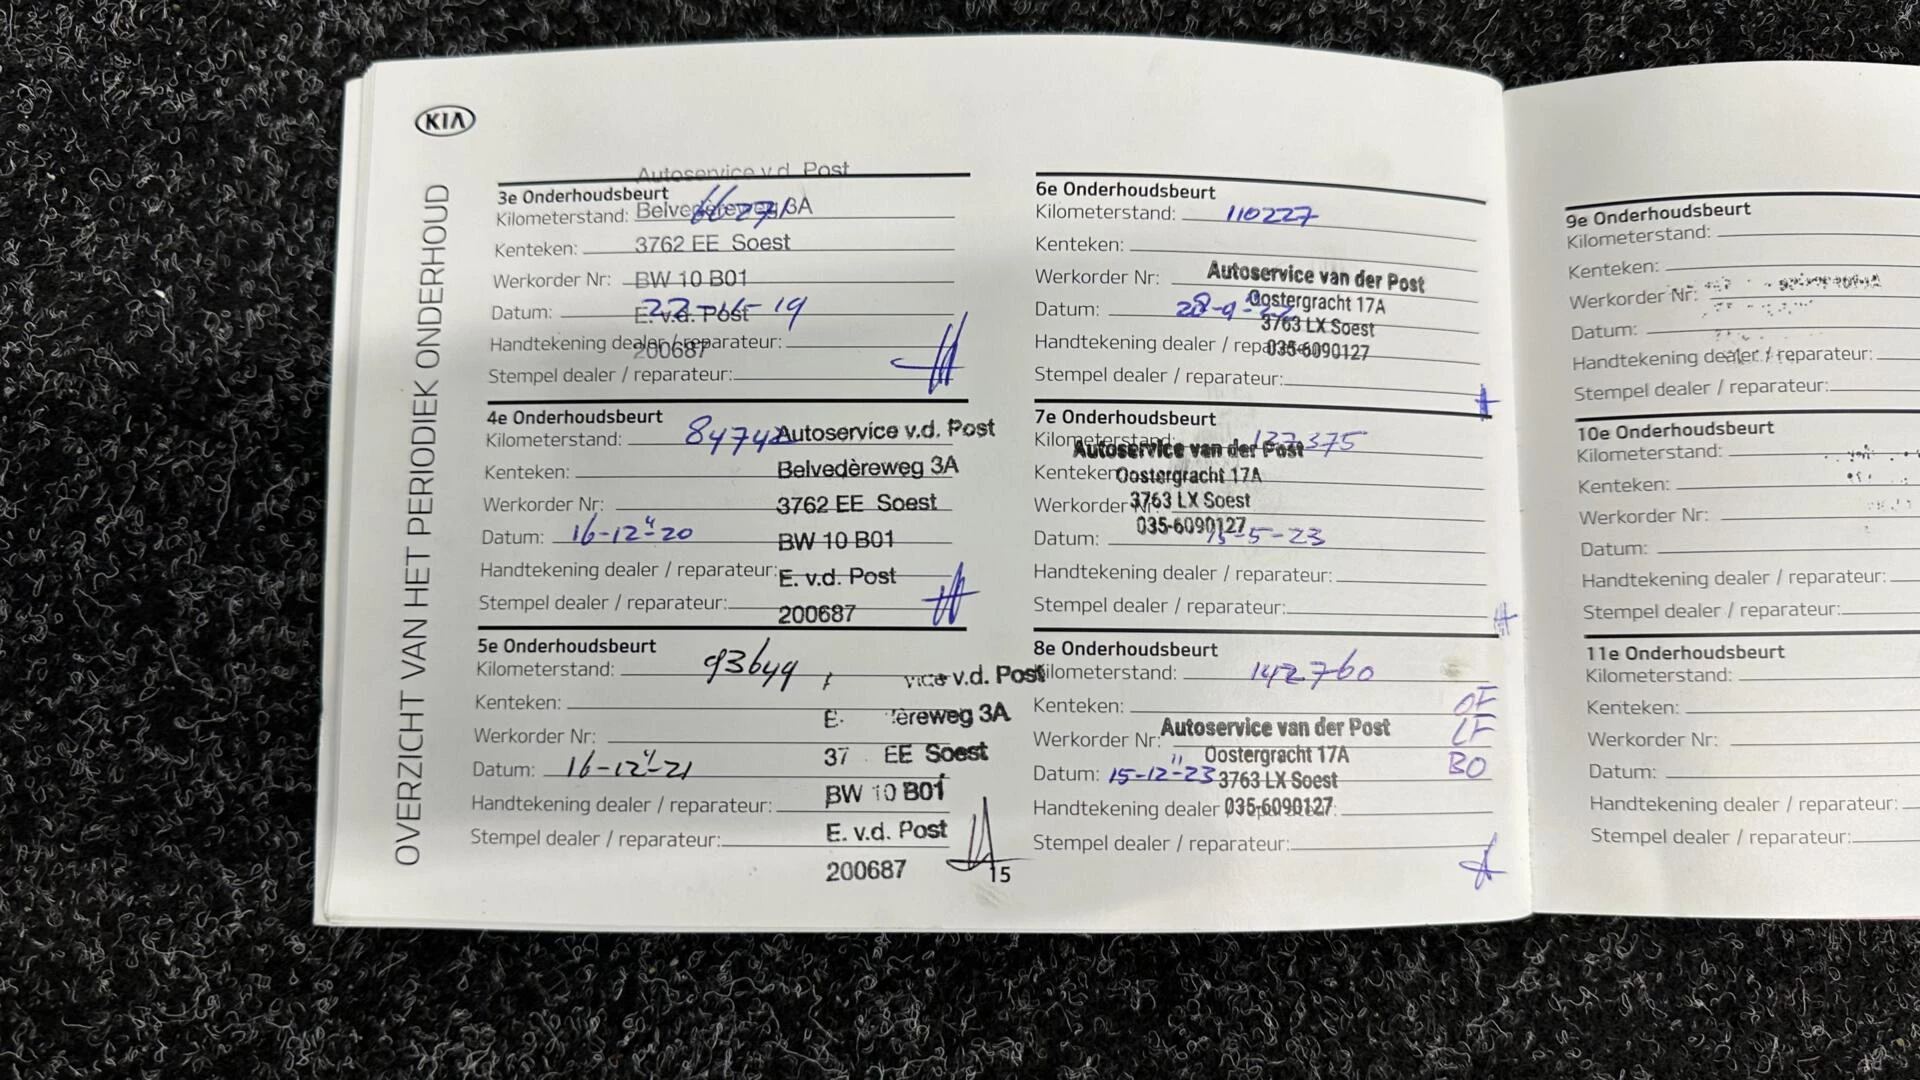 KIA
OVERZICHT VAN HET PERIODIEK ONDERHOUD
Autoservice v.d. Post
3e Onderhoudsbeurt
Kilometerstand: Belvedèreweg 3A
Kenteken: 3762 EE Soest
Werkorder Nr: BW 10 B01
Datum:
E. v.d. Post
Handtekening dealer / reparateur:
200687
Stempel dealer / reparateur:
4e Onderhoudsbeurt
Kilometerstand: Autoservice v.d. Post
Kenteken: Belvedèreweg 3A
Werkorder Nr: 3762 EE Soest
Datum: 16-12-20 BW 10 B01
Handtekening dealer / reparateur: E. v.d. Post
Stempel dealer / reparateur: 200687
5e Onderhoudsbeurt
Kilometerstand: 93644 vice v.d. Post
Kenteken: èreweg 3A
Werkorder Nr: 37 EE Soest
Datum: 16-12-21 BW 10 B01
Handtekening dealer / reparateur: E. v.d. Post
Stempel dealer / reparateur: 200687
15
6e Onderhoudsbeurt
Kilometerstand: 110227
Kenteken:
Werkorder Nr: Autoservice van der Post
Datum: Oostergracht 17A
3763 LX Soest
Handtekening dealer / reparateur: 035-6090127
Stempel dealer / reparateur:
7e Onderhoudsbeurt
Kilometerstand: 137375
Autoservice van der Post
Kenteken: Oostergracht 17A
Werkorder Nr: 3763 LX Soest
035-6090127
Datum: 15-5-23
Handtekening dealer / reparateur:
Stempel dealer / reparateur:
8e Onderhoudsbeurt
Kilometerstand: 142760
Kenteken: OF
Werkorder Nr: Autoservice van der Post LF
Oostergracht 17A
Datum: 15-12-23 3763 LX Soest BO
Handtekening dealer 035-6090127
Stempel dealer / reparateur:
9e Onderhoudsbeurt
Kilometerstand:
Kenteken:
Werkorder Nr:
Datum:
Handtekening dealer / reparateur:
Stempel dealer / reparateur:
10e Onderhoudsbeurt
Kilometerstand:
Kenteken:
Werkorder Nr:
Datum:
Handtekening dealer / reparateur:
Stempel dealer / reparateur:
11e Onderhoudsbeurt
Kilometerstand:
Kenteken:
Werkorder Nr:
Datum:
Handtekening dealer / reparateur:
Stempel dealer / reparateur: